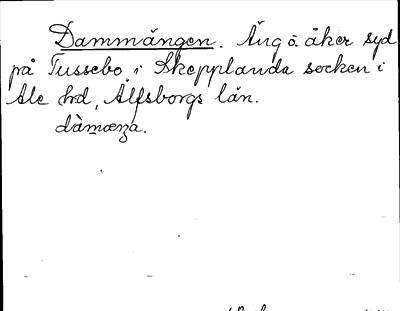 Dammängen. Äng o. åker syd
på Tussebo i Skepplanda socken i
Ale hrd, Älfsborgs län.